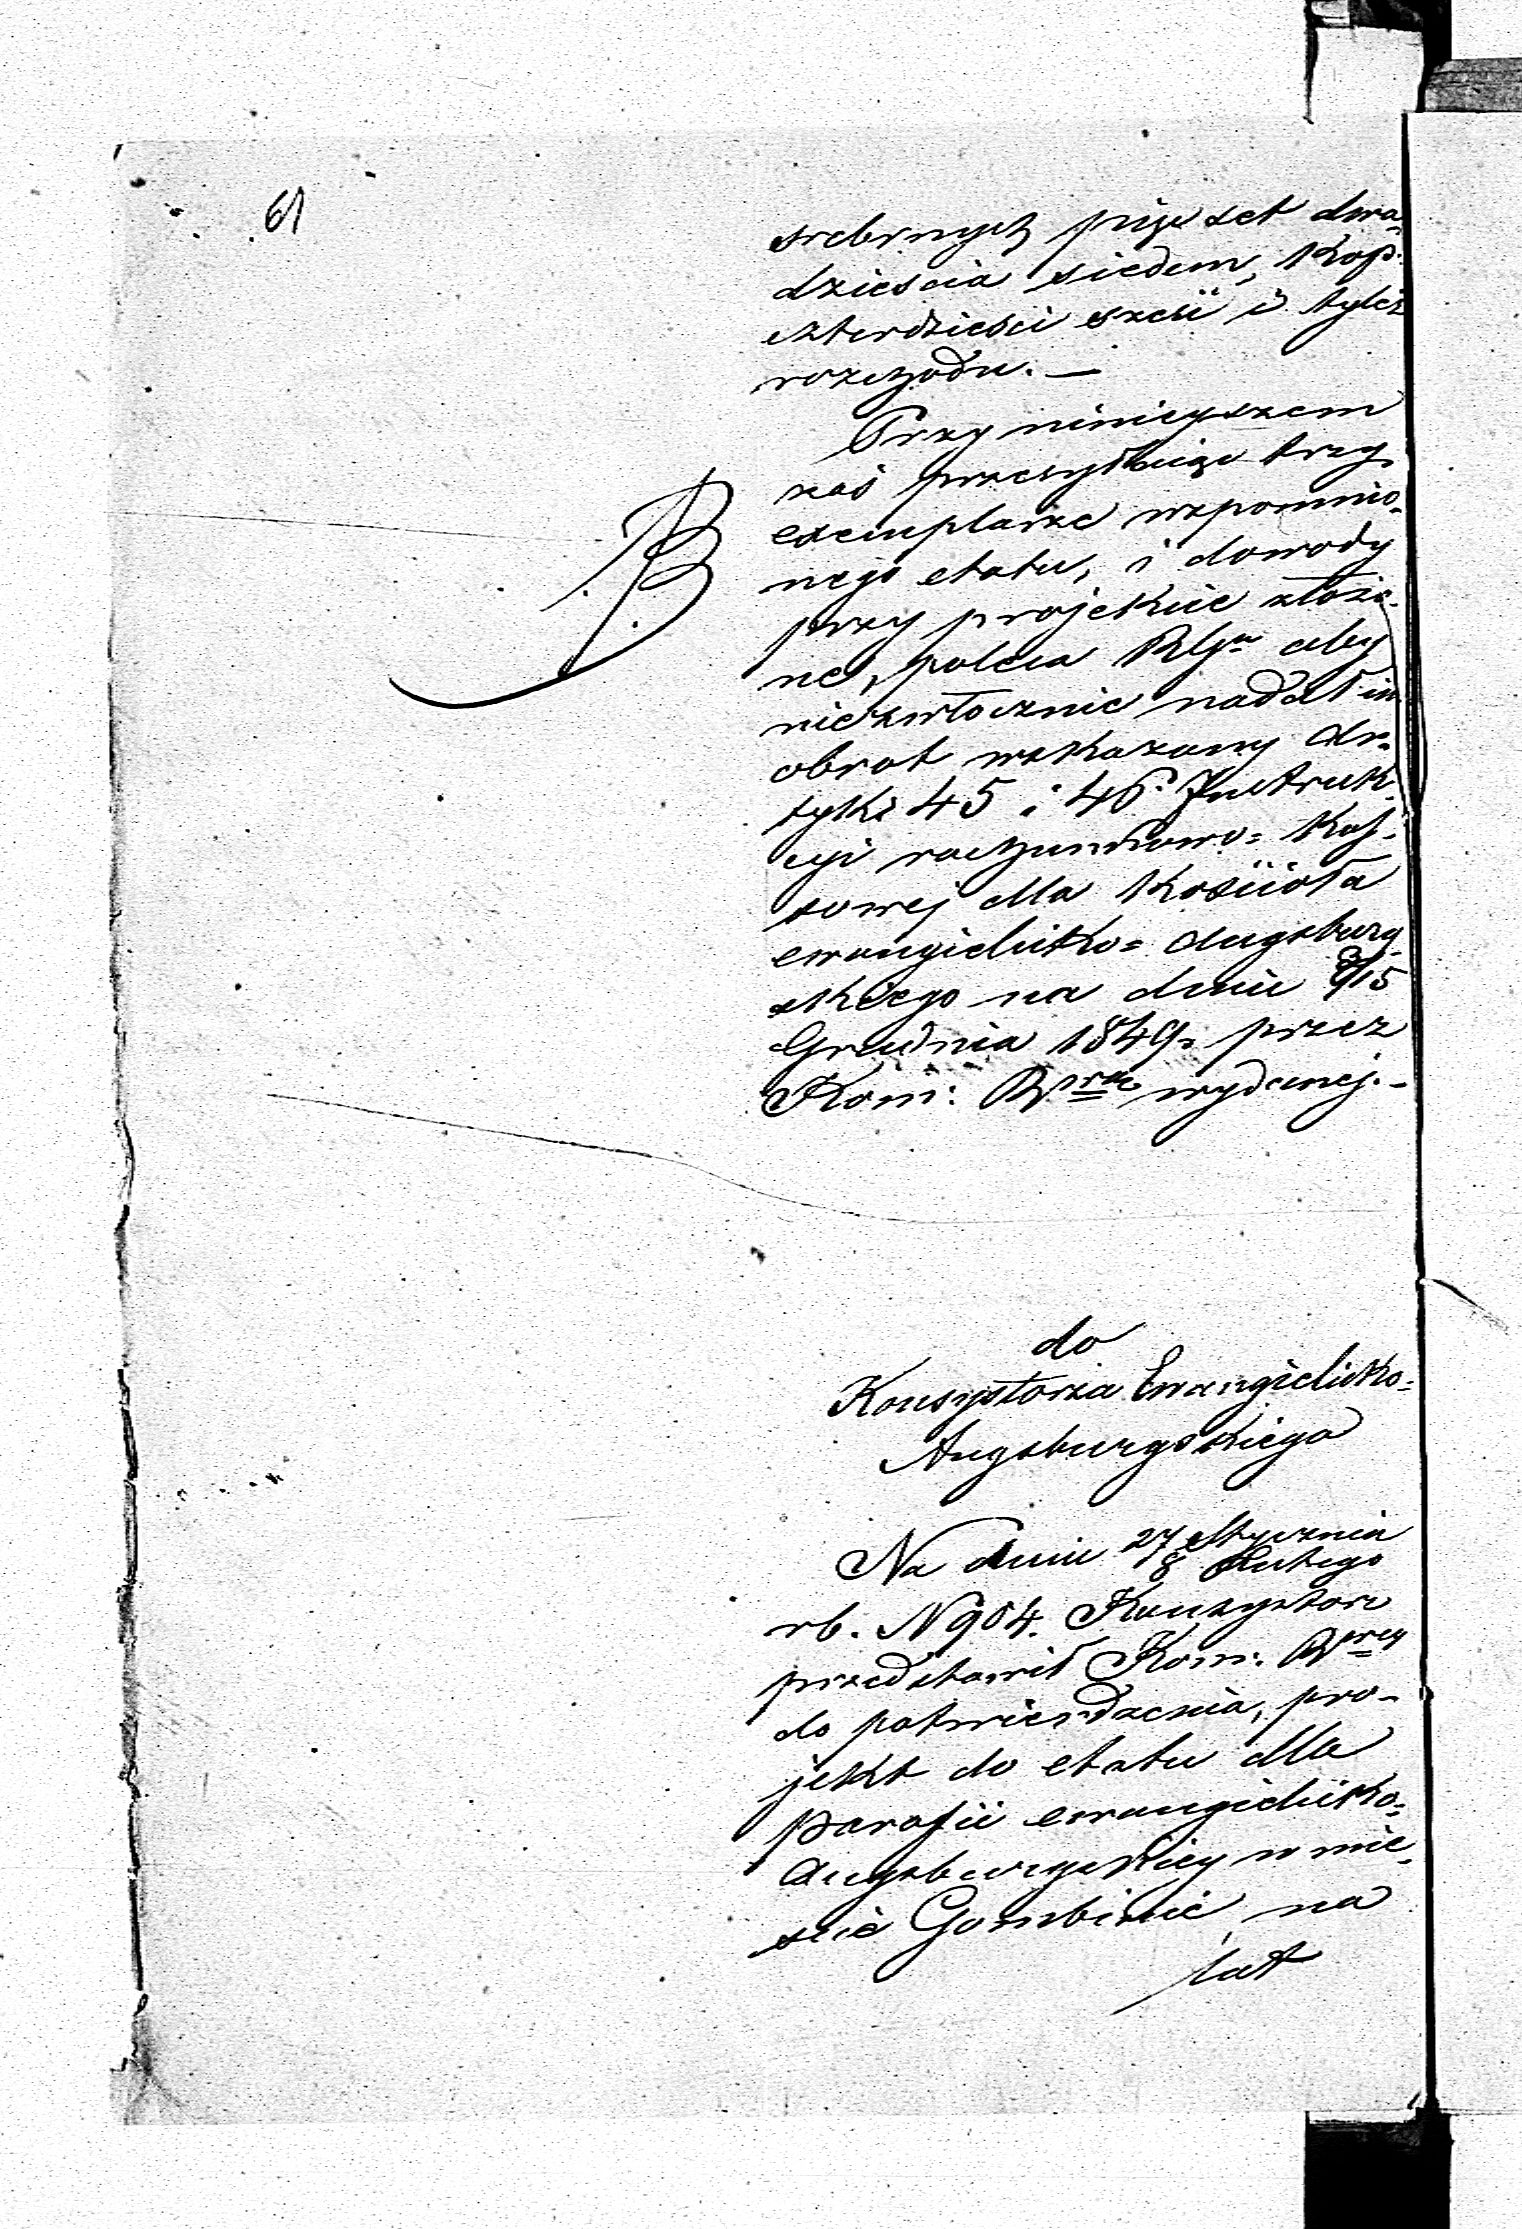 61
srebrnych pięć set dwa-
dzieścia siedem, Kop:
czterdzieści sześć i tyleż
rozchodu. —
Przy niniejszem
zaś przesyłając trzy
exemplarze wspomnio-
nego etatu, i dowody
przy projekcie złożo-
ne, poleca RGu aby
niezwłocznie nadał im
obrot wskazany Ar-
tykł 45 i 46 Instruk-
cyi rachunkowo= Kas-
sowej dla Kościoła
ewangielicko= Augsburg-
skiego na dniu 3/15
Grudnia 1849. przez
Kom: Rz wydanej. -
do
Konsystorza Ewangielicko=
Augsburgskiego
Na dniu 27 Stycznia
8 Lutego
rb. N 904. Konsystorz
przedstawił Kom: Rz
do potwierdzenia, pro-
jekt do etatu dla
Parafii ewangielicko=
Augsburgskiey w mie-
scie Gombinie na
lat